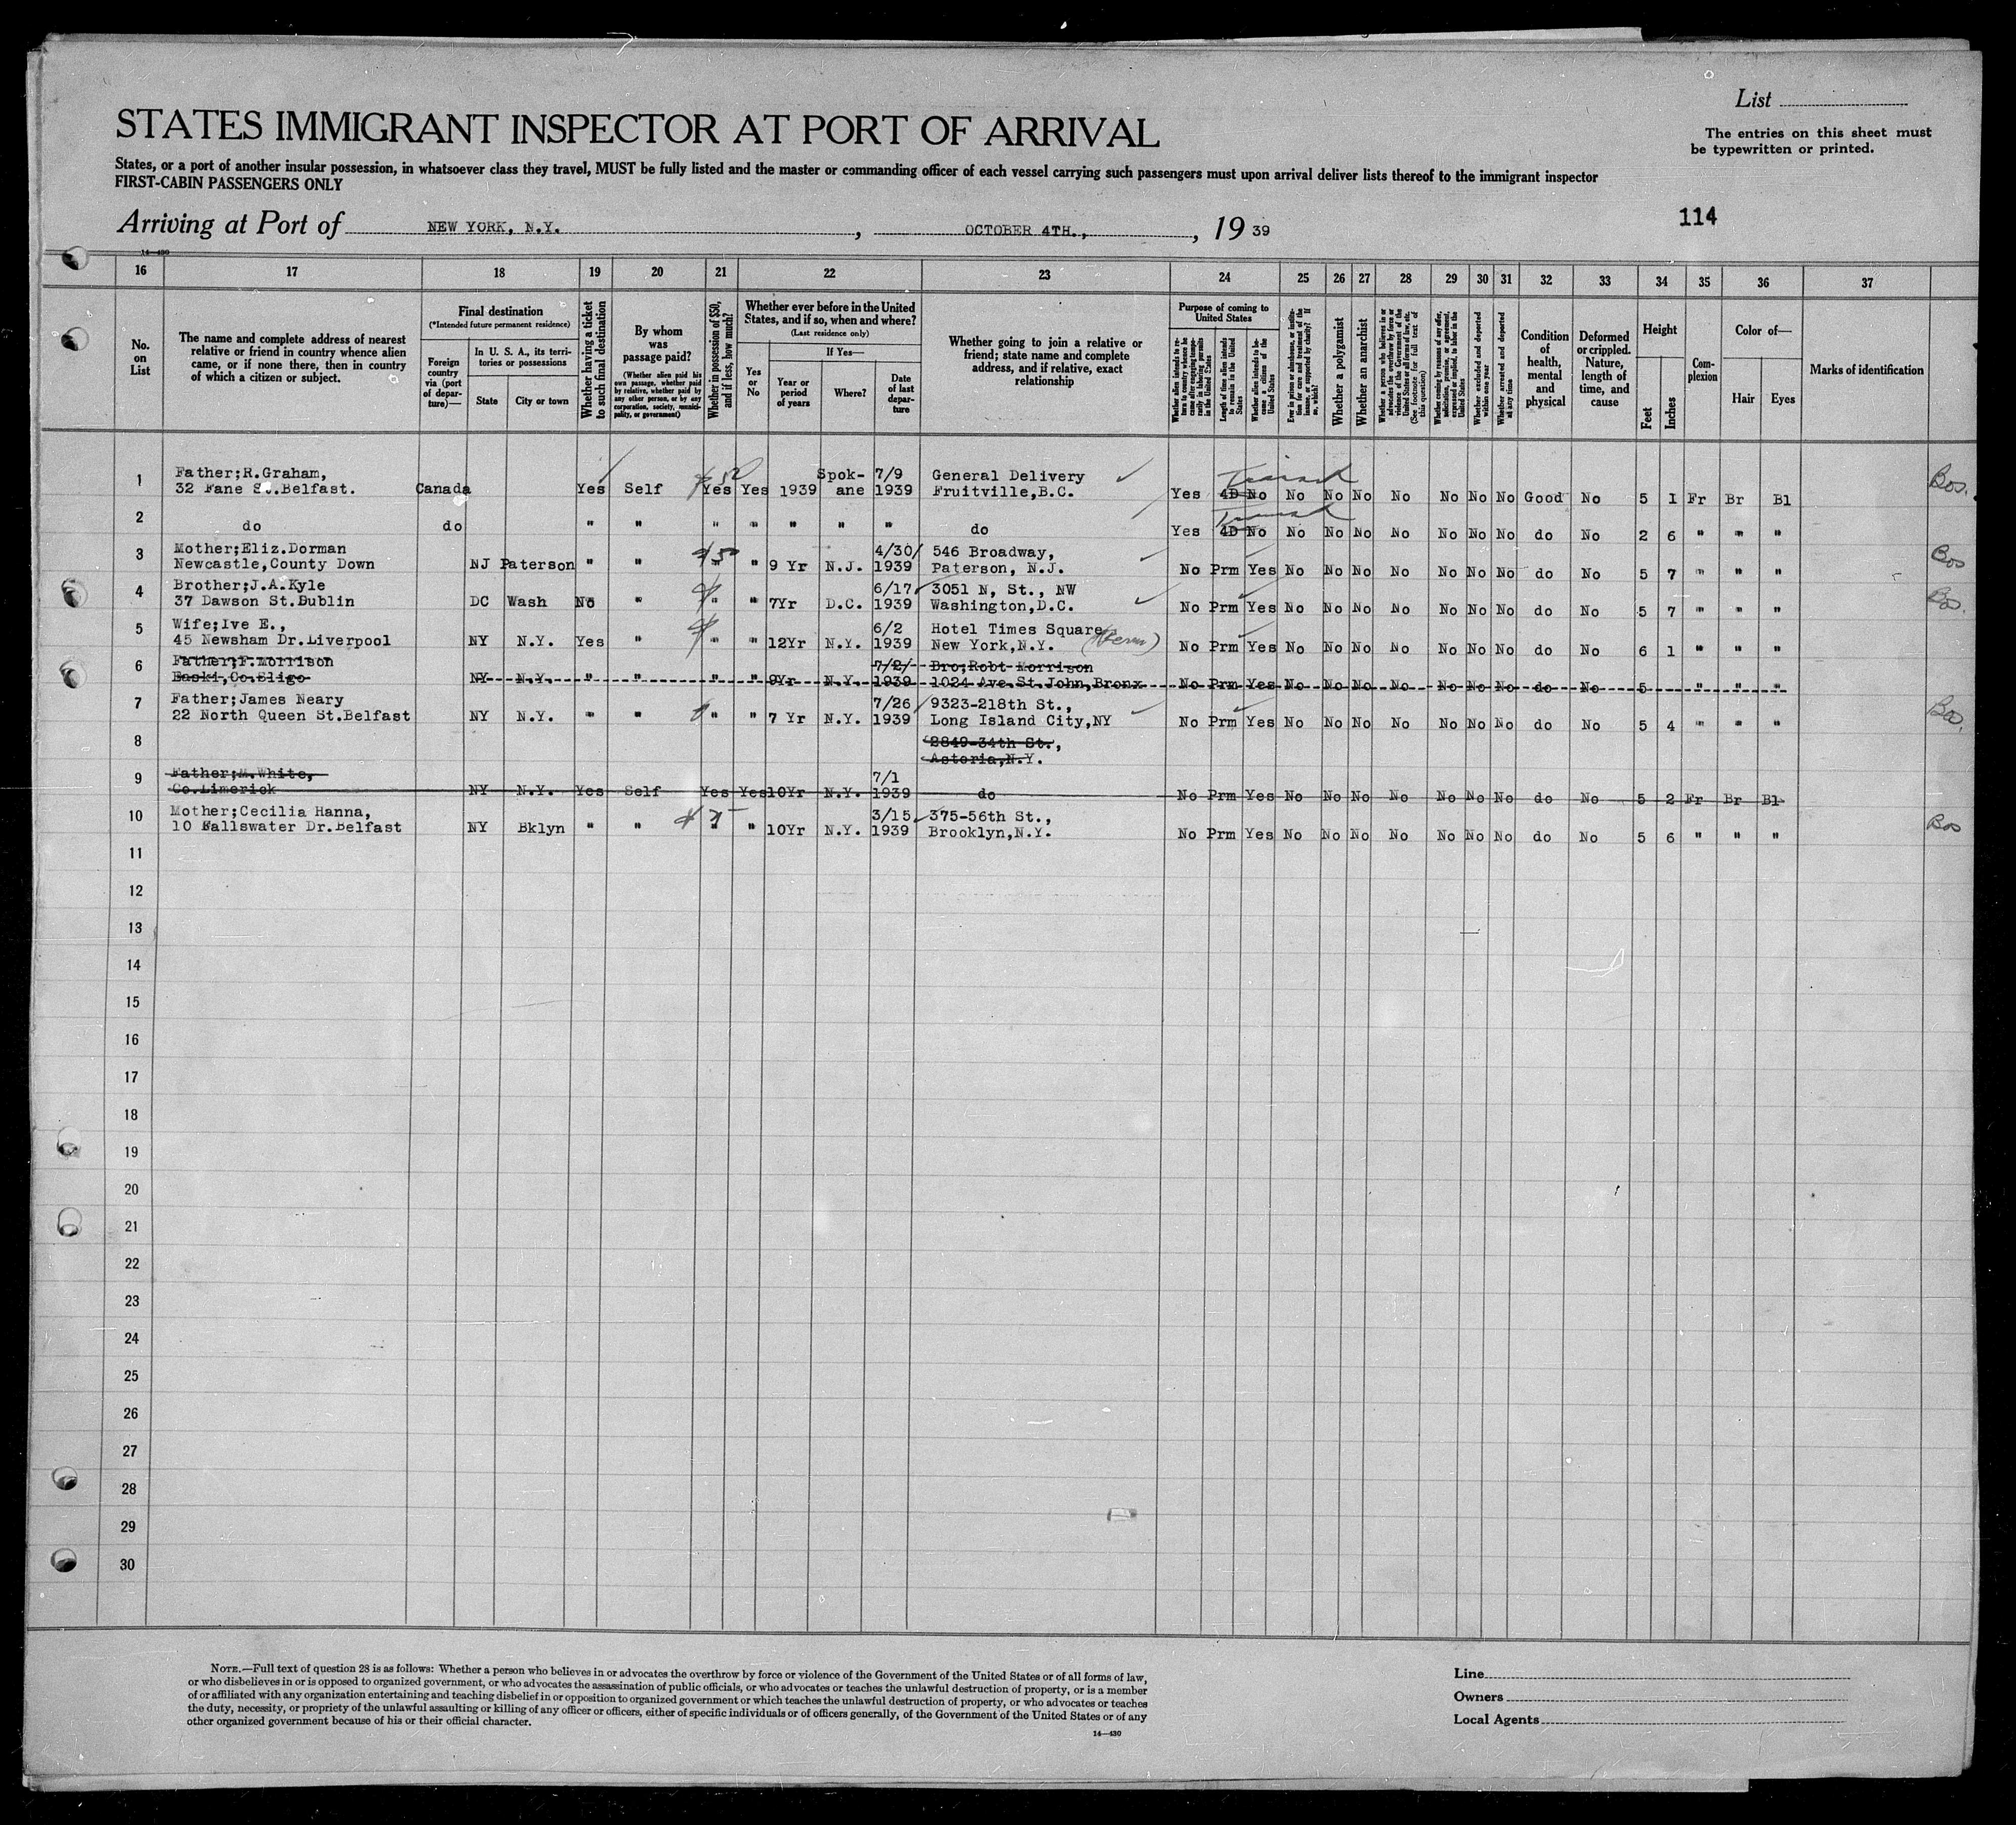 List
STATES IMMIGRANT INSPECTOR AT PORT OF ARRIVAL
The entries on this sheet must
be typewritten or printed.
States, or a port of another insular possession, in whatsoever class they travel, MUST be fully listed and the master or commanding officer of each vessel carrying such passengers must upon arrival deliver lists thereof to the immigrant inspector
FIRST-CABIN PASSENGERS ONLY
Arriving at Port of NEW YORK, N.Y. , OCTOBER 4TH., , 19 39
114
14—430
16 17 18 19 20 21 22 23 24 25 26 27 28 29 30 31 32 33 34 35 36 37
No.
on
List
The name and complete address of nearest
relative or friend in country whence alien
came, or if none there, then in country
of which a citizen or subject.
Final destination
(*Intended future permanent residence)
Foreign
country
via (port
of depar-
ture)—
In U. S. A., its terri-
tories or possessions
State
City or town
Whether having a ticket
to such final destination
By whom
was
passage paid?
(Whether alien paid his
own passage, whether paid
by relative, whether paid by
any other person, or by any
corporation, society, munici-
pality, or government)
Whether in possession of $50,
and if less, how much?
Whether ever before in the United
States, and if so, when and where?
(Last residence only)
Yes
or
No
If Yes—
Year or
period
of years
Where?
Date
of last
depar-
ture
Whether going to join a relative or
friend; state name and complete
address, and if relative, exact
relationship
Purpose of coming to
United States
Whether alien intends to re-
turn to country whence he
came after engaging tempo-
rarily in laboring pursuits
in the United States
Length of time alien intends
to remain in the United
States
Whether alien intends to be-
come a citizen of the
United States
Ever in prison or almshouse, or institu-
tion for care and treatment of the
insane, or supported by charity? If
so, which?
Whether a polygamist
Whether an anarchist
Whether a person who believes in or
advocates the overthrow by force or
violence of the Government of the
United States or all forms of law, etc.
(See footnote for full text of
this question)
Whether coming by reasons of any offer,
solicitation, promise, or agreement,
expressed or implied, to labor in the
United States
Whether excluded and deported
within one year
Whether arrested and deported
at any time
Condition
of
health,
mental
and
physical
Deformed
or crippled.
Nature,
length of
time, and
cause
Height
Feet
Inches
Com-
plexion
Color of—
Hair
Eyes
Marks of identification
Father;R.Graham, Spok- 7/9 General Delivery Transit
1 32 Fane St.Belfast. Canada Yes Self $50 Yes Yes 1939 ane 1939 Fruitville,B.C. Yes 4D No No No No No No No No Good No 5 1 Fr Br Bl Bos.
2 do do " " " " " " " do Transit Yes 4D No No No No No No No No do No 2 6 " " "
Mother;Eliz.Dorman 4/30/ 546 Broadway,
3 Newcastle,County Down NJ Paterson " " $50 " " 9 Yr N.J. 1939 Paterson, N.J. No Prm Yes No No No No No No No do No 5 7 " " " Bos
Brother;J.A.Kyle 6/17 3051 N, St., NW
4 37 Dawson St.Dublin DC Wash No " " " 7Yr D.C. 1939 Washington,D.C. No Prm Yes No No No No No No No do No 5 7 " " " Bos.
Wife;Ive E., 6/2 Hotel Times Square
5 45 Newsham Dr.Liverpool NY N.Y. Yes " " 12Yr N.Y. 1939 New York,N.Y. No Prm Yes No No No No No No No do No 6 1 " " "
Father;F.Morrison 7/2/ Bro;Robt Morrison
6 Easki,Co.Sligo NY N.Y. " " " " 9Yr N.Y. 1939 1024 Ave.St.John,Bronx No Prm Yes No No No No No No No do No 5 " " "
Father;James Neary 7/26 9323-218th St.,
7 22 North Queen St.Belfast NY N.Y. " " " " 7 Yr N.Y. 1939 Long Island City,NY No Prm Yes No No No No No No No do No 5 4 " " " Bos.
8 2849-34th St.,
Astoria,N.Y.
Father;M.White, 7/1
9 Co.Limerick NY N.Y. Yes Self Yes Yes 10Yr N.Y. 1939 do No Prm Yes No No No No No No No do No 5 2 Fr Br Bl
Mother;Cecilia Hanna, 3/15 375-56th St.,
10 10 Fallswater Dr.Belfast NY Bklyn " " " " 10Yr N.Y. 1939 Brooklyn,N.Y. No Prm Yes No No No No No No No do No 5 6 " " " Bos
11
12
13
14
15
16
17
18
19
20
21
22
23
24
25
26
27
28
29
30
NOTE.—Full text of question 28 is as follows: Whether a person who believes in or advocates the overthrow by force or violence of the Government of the United States or of all forms of law,
or who disbelieves in or is opposed to organized government, or who advocates the assassination of public officials, or who advocates or teaches the unlawful destruction of property, or is a member
of or affiliated with any organization entertaining and teaching disbelief in or opposition to organized government or which teaches the unlawful destruction of property, or who advocates or teaches
the duty, necessity, or propriety of the unlawful assaulting or killing of any officer or officers, either of specific individuals or of officers generally, of the Government of the United States or of any
other organized government because of his or their official character.
14—430
Line
Owners
Local Agents